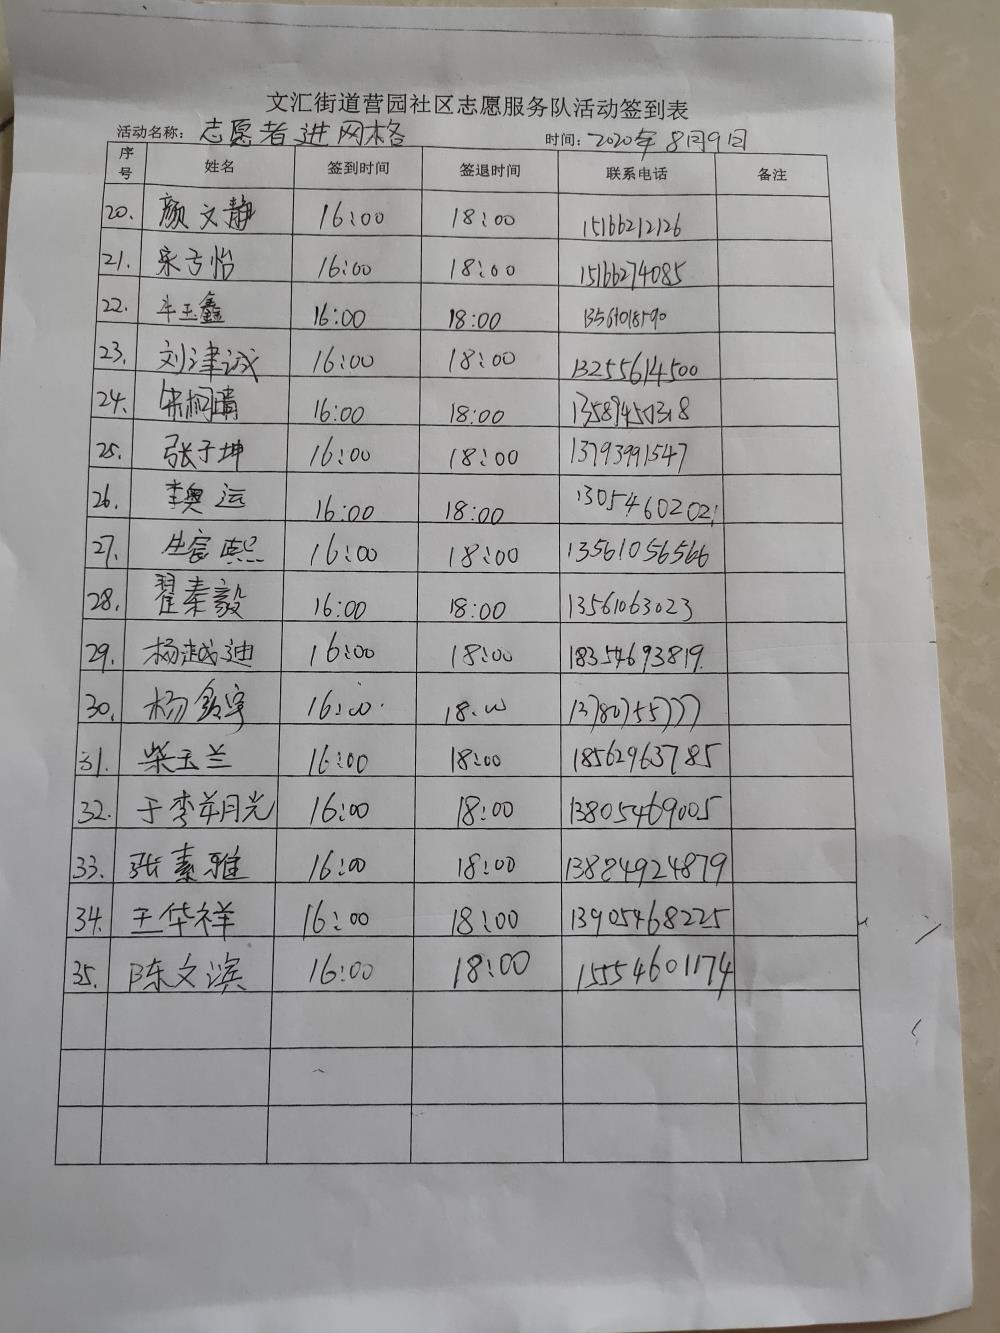 文汇街道营园社区志愿服务队活动签到表
活动名称: 志愿者进网格 时间: 2020年8月9日
序号 姓名 签到时间 签退时间 联系电话 备注
20. 颜文静 16:00 18:00 15166212126
21. 16:00 18:00 15166274085
22. 牟玉鑫 16:00 18:00 13561018590
23. 刘津诚 16:00 18:00 13255614500
24. 宋柯晴 16:00 18:00 13589450318
25. 张子坤 16:00 18:00 13793991547
26. 李奥运 16:00 18:00 13054602021
27. 16:00 18:00 13561056566
28. 翟秦毅 16:00 18:00 13561063023
29. 杨越迪 16:00 18:00 18354693819
30. 杨 16:00 18:00 13780755777
31. 柴玉兰 16:00 18:00 18562963785
32. 于李羊月光 16:00 18:00 13805469005
33. 张素雅 16:00 18:00 13884924879
34. 王华祥 16:00 18:00 13905468225
35. 陈文滨 16:00 18:00 15554601174